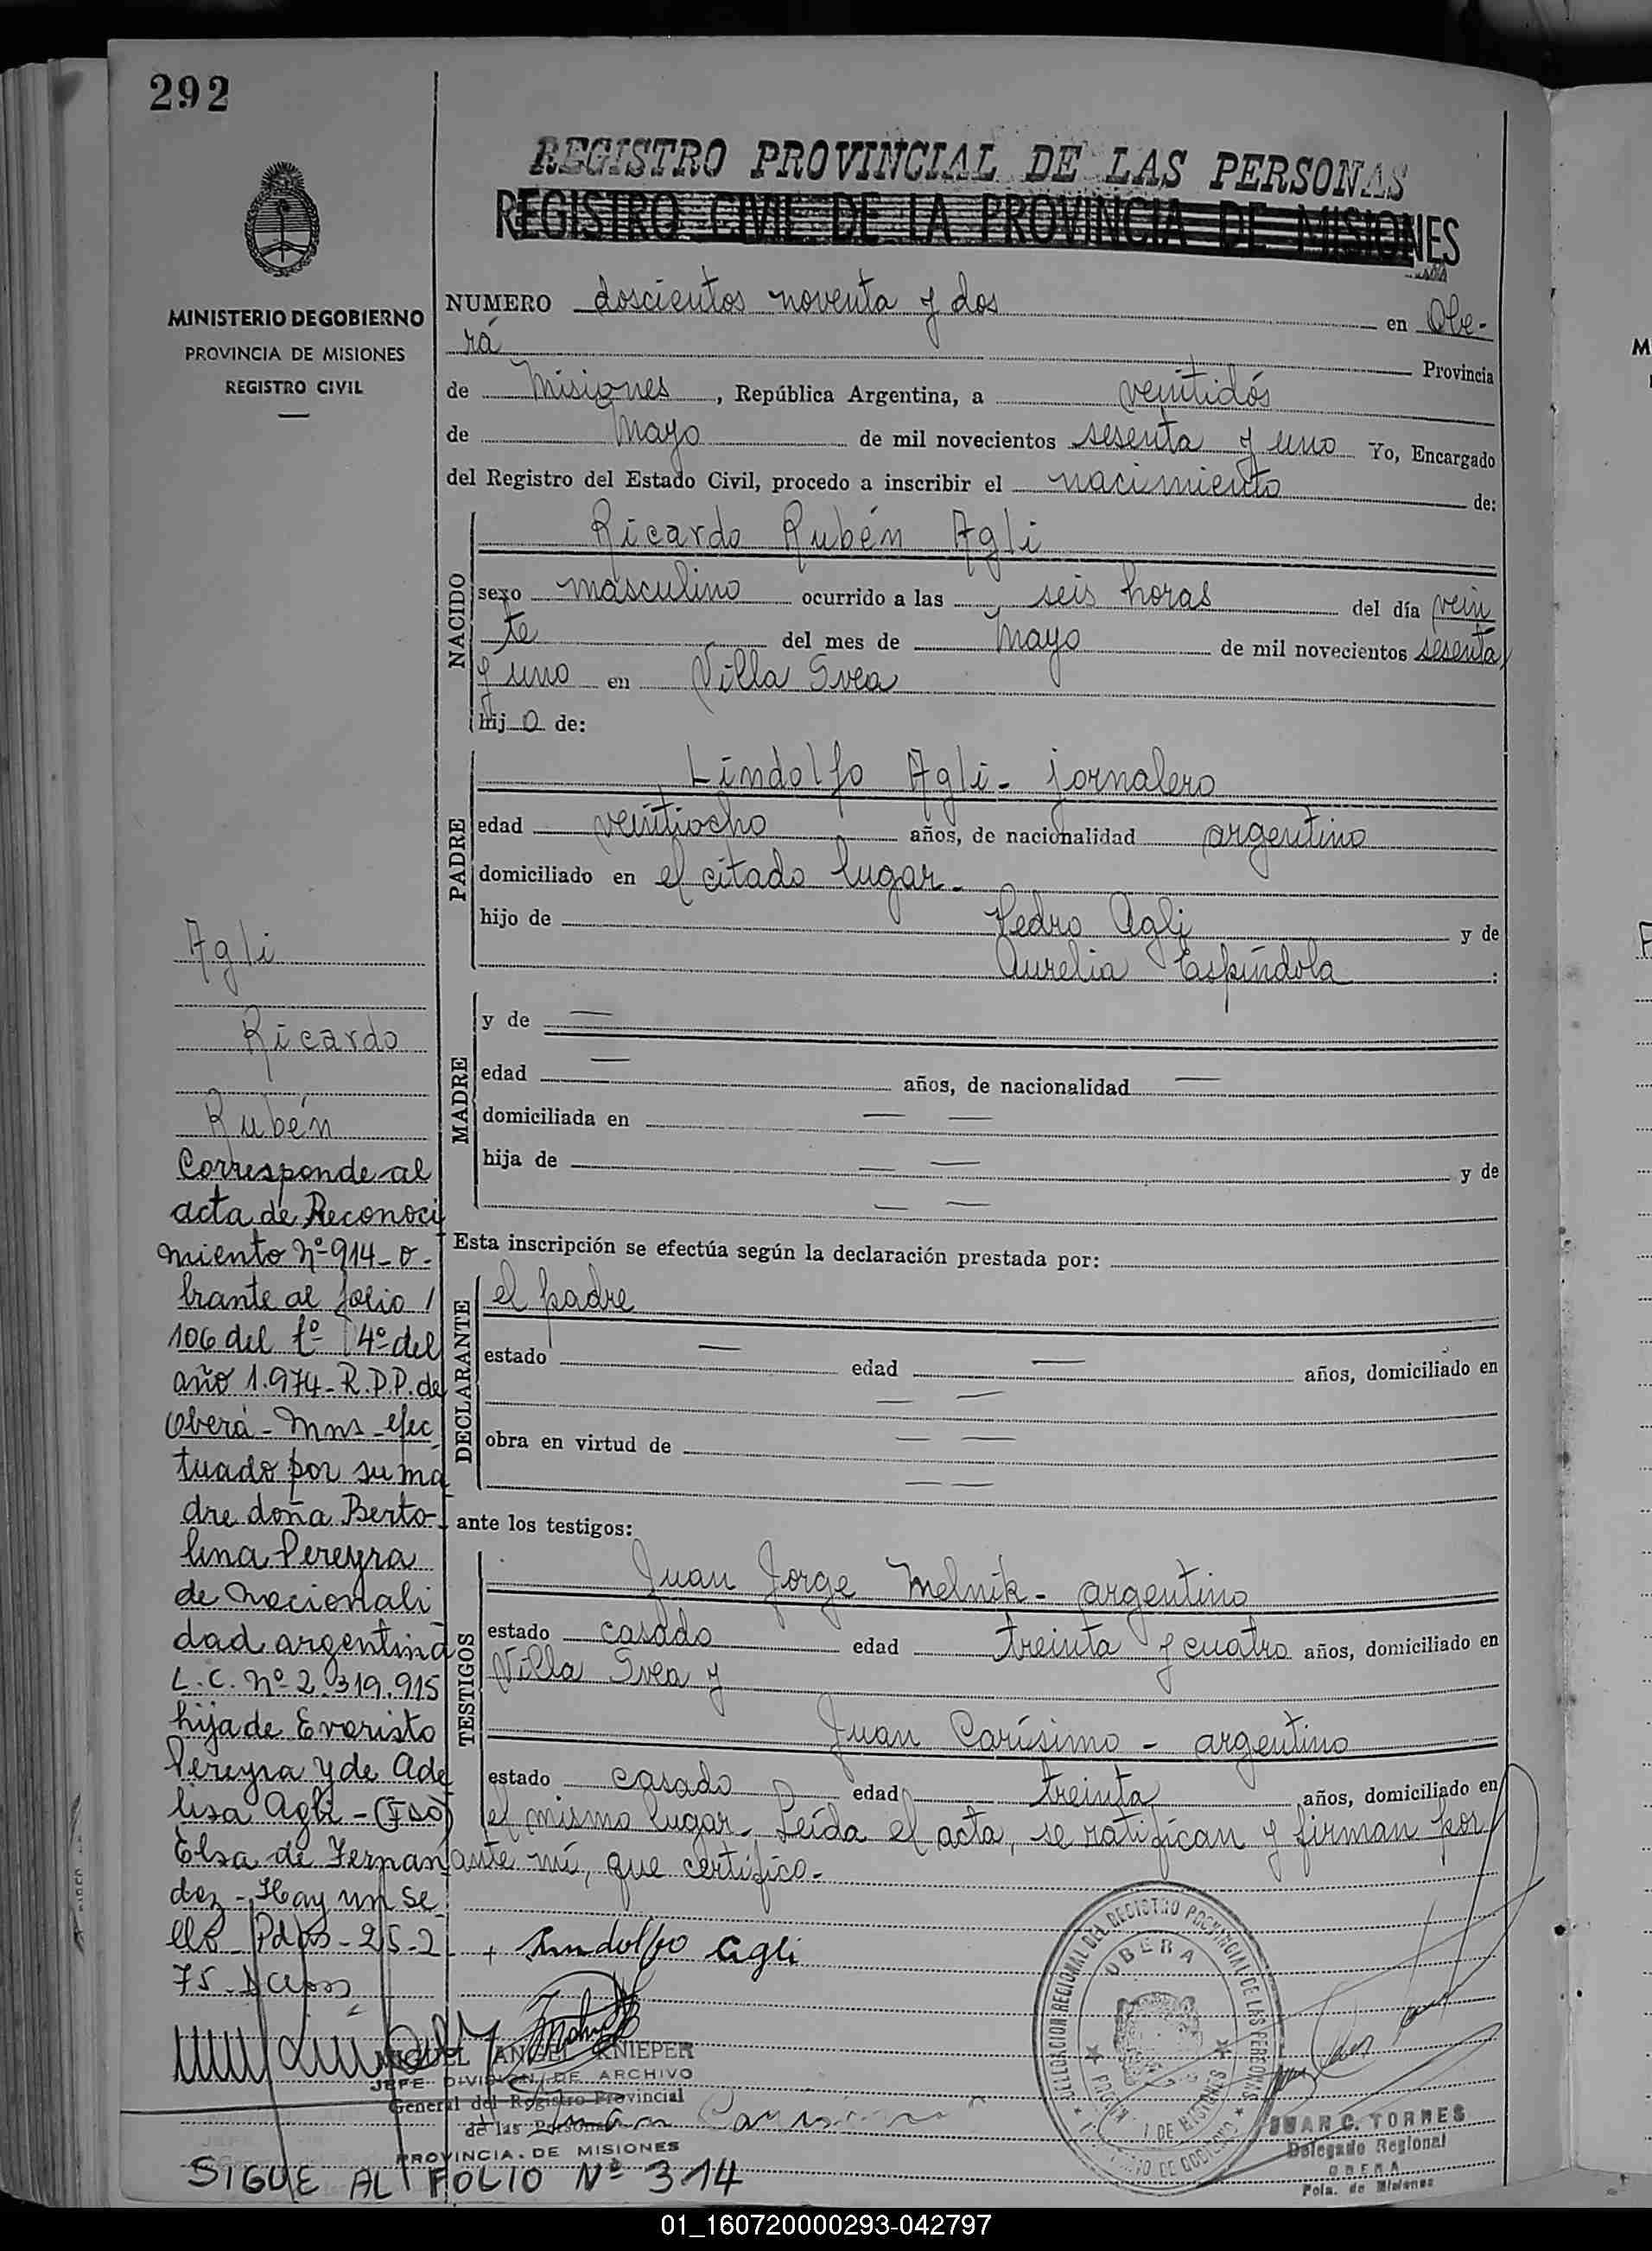 292
REGISTRO PROVINCIAL DE LAS PERSONAS
REGISTRO CIVIL DE LA PROVINCIA DE MISIONES
MINISTERIO DE GOBIERNO
PROVINCIA DE MISIONES
REGISTRO CIVIL
NUMERO doscientos noventa y dos en Obe-
rá Provincia
de Misiones, República Argentina, a veintidós
de Mayo de mil novecientos sesenta y uno Yo, Encargado
del Registro del Estado Civil, procedo a inscribir el nacimiento de:
NACIDO
Ricardo Rubén Agli
sexo masculino ocurrido a las seis horas del día vein
te del mes de Mayo de mil novecientos sesenta
y uno en Villa Svea
hijo de:
PADRE
Lindolfo Agli - jornalero
edad veintiocho años, de nacionalidad argentino
domiciliado en el citado lugar.
hijo de Pedro Agli y de
Aurelia Espíndola :
MADRE
y de —
edad — años, de nacionalidad —
domiciliada en — —
hija de — — y de
— —
Esta inscripción se efectúa según la declaración prestada por:
DECLARANTE
el padre
estado — edad — años, domiciliado en
— —
obra en virtud de — —
— —
ante los testigos:
TESTIGOS
Juan Jorge Melnik - argentino
estado casado edad treinta y cuatro años, domiciliado en
Villa Svea y
Juan Carísimo - argentino
estado casado edad treinta años, domiciliado en
el mismo lugar. Leída el acta, se ratifican y firman por
ante mí, que certifico.-
+ Lindolfo Agli
Agli
Ricardo
Rubén
Corresponde al
acta de Reconoci
miento Nº 914 - o-
brante al folio /
106 del tº 4º del
año 1.974 - R.P.P. de
Oberá - Mns - efec
tuado por su ma
dre doña Berto-
lina Pereyra
de nacionali
dad argentina
L.C. Nº 2.319.915
hija de Evaristo
Pereyra y de Ade
lisa Agli - (Fdo)
Elsa de Fernan
dez - Hay un se
llo - Pdas - 25-2-
75.
MIGUEL ANGEL KNIEPER
JEFE DIVISION DE ARCHIVO
General del Registro Provincial
de las Personas
PROVINCIA DE MISIONES
Juan Carisimo
DELEGACION REGIONAL DEL REGISTRO PROVINCIAL DE LAS PERSONAS
OBERA
JUAN C. TORRES
Delegado Regional
OBERA
Pcia. de Misiones
SIGUE AL FOLIO Nº 314
01_160720000293-042797